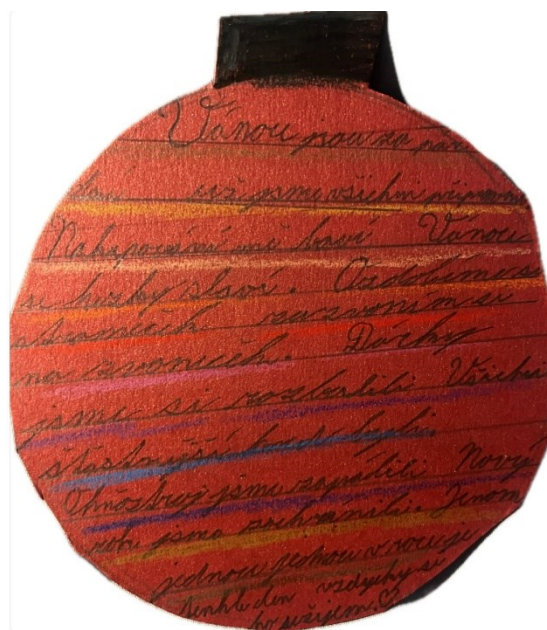 Vánoce jsou za pár
dní už jsme všichni připraveni
Nakupování mě baví Vánoce
se hezky slaví. Ozdobíme si
stromeček zazvoním si
na zvoneček. Dárky
jsme si rozbalili Všichni
šťastnější
Ohňostroj jsme zapálili Nový
rok jsme zachránili. Jenom
jednou v roce je
tenhle den vzdycky si
ho užijem.